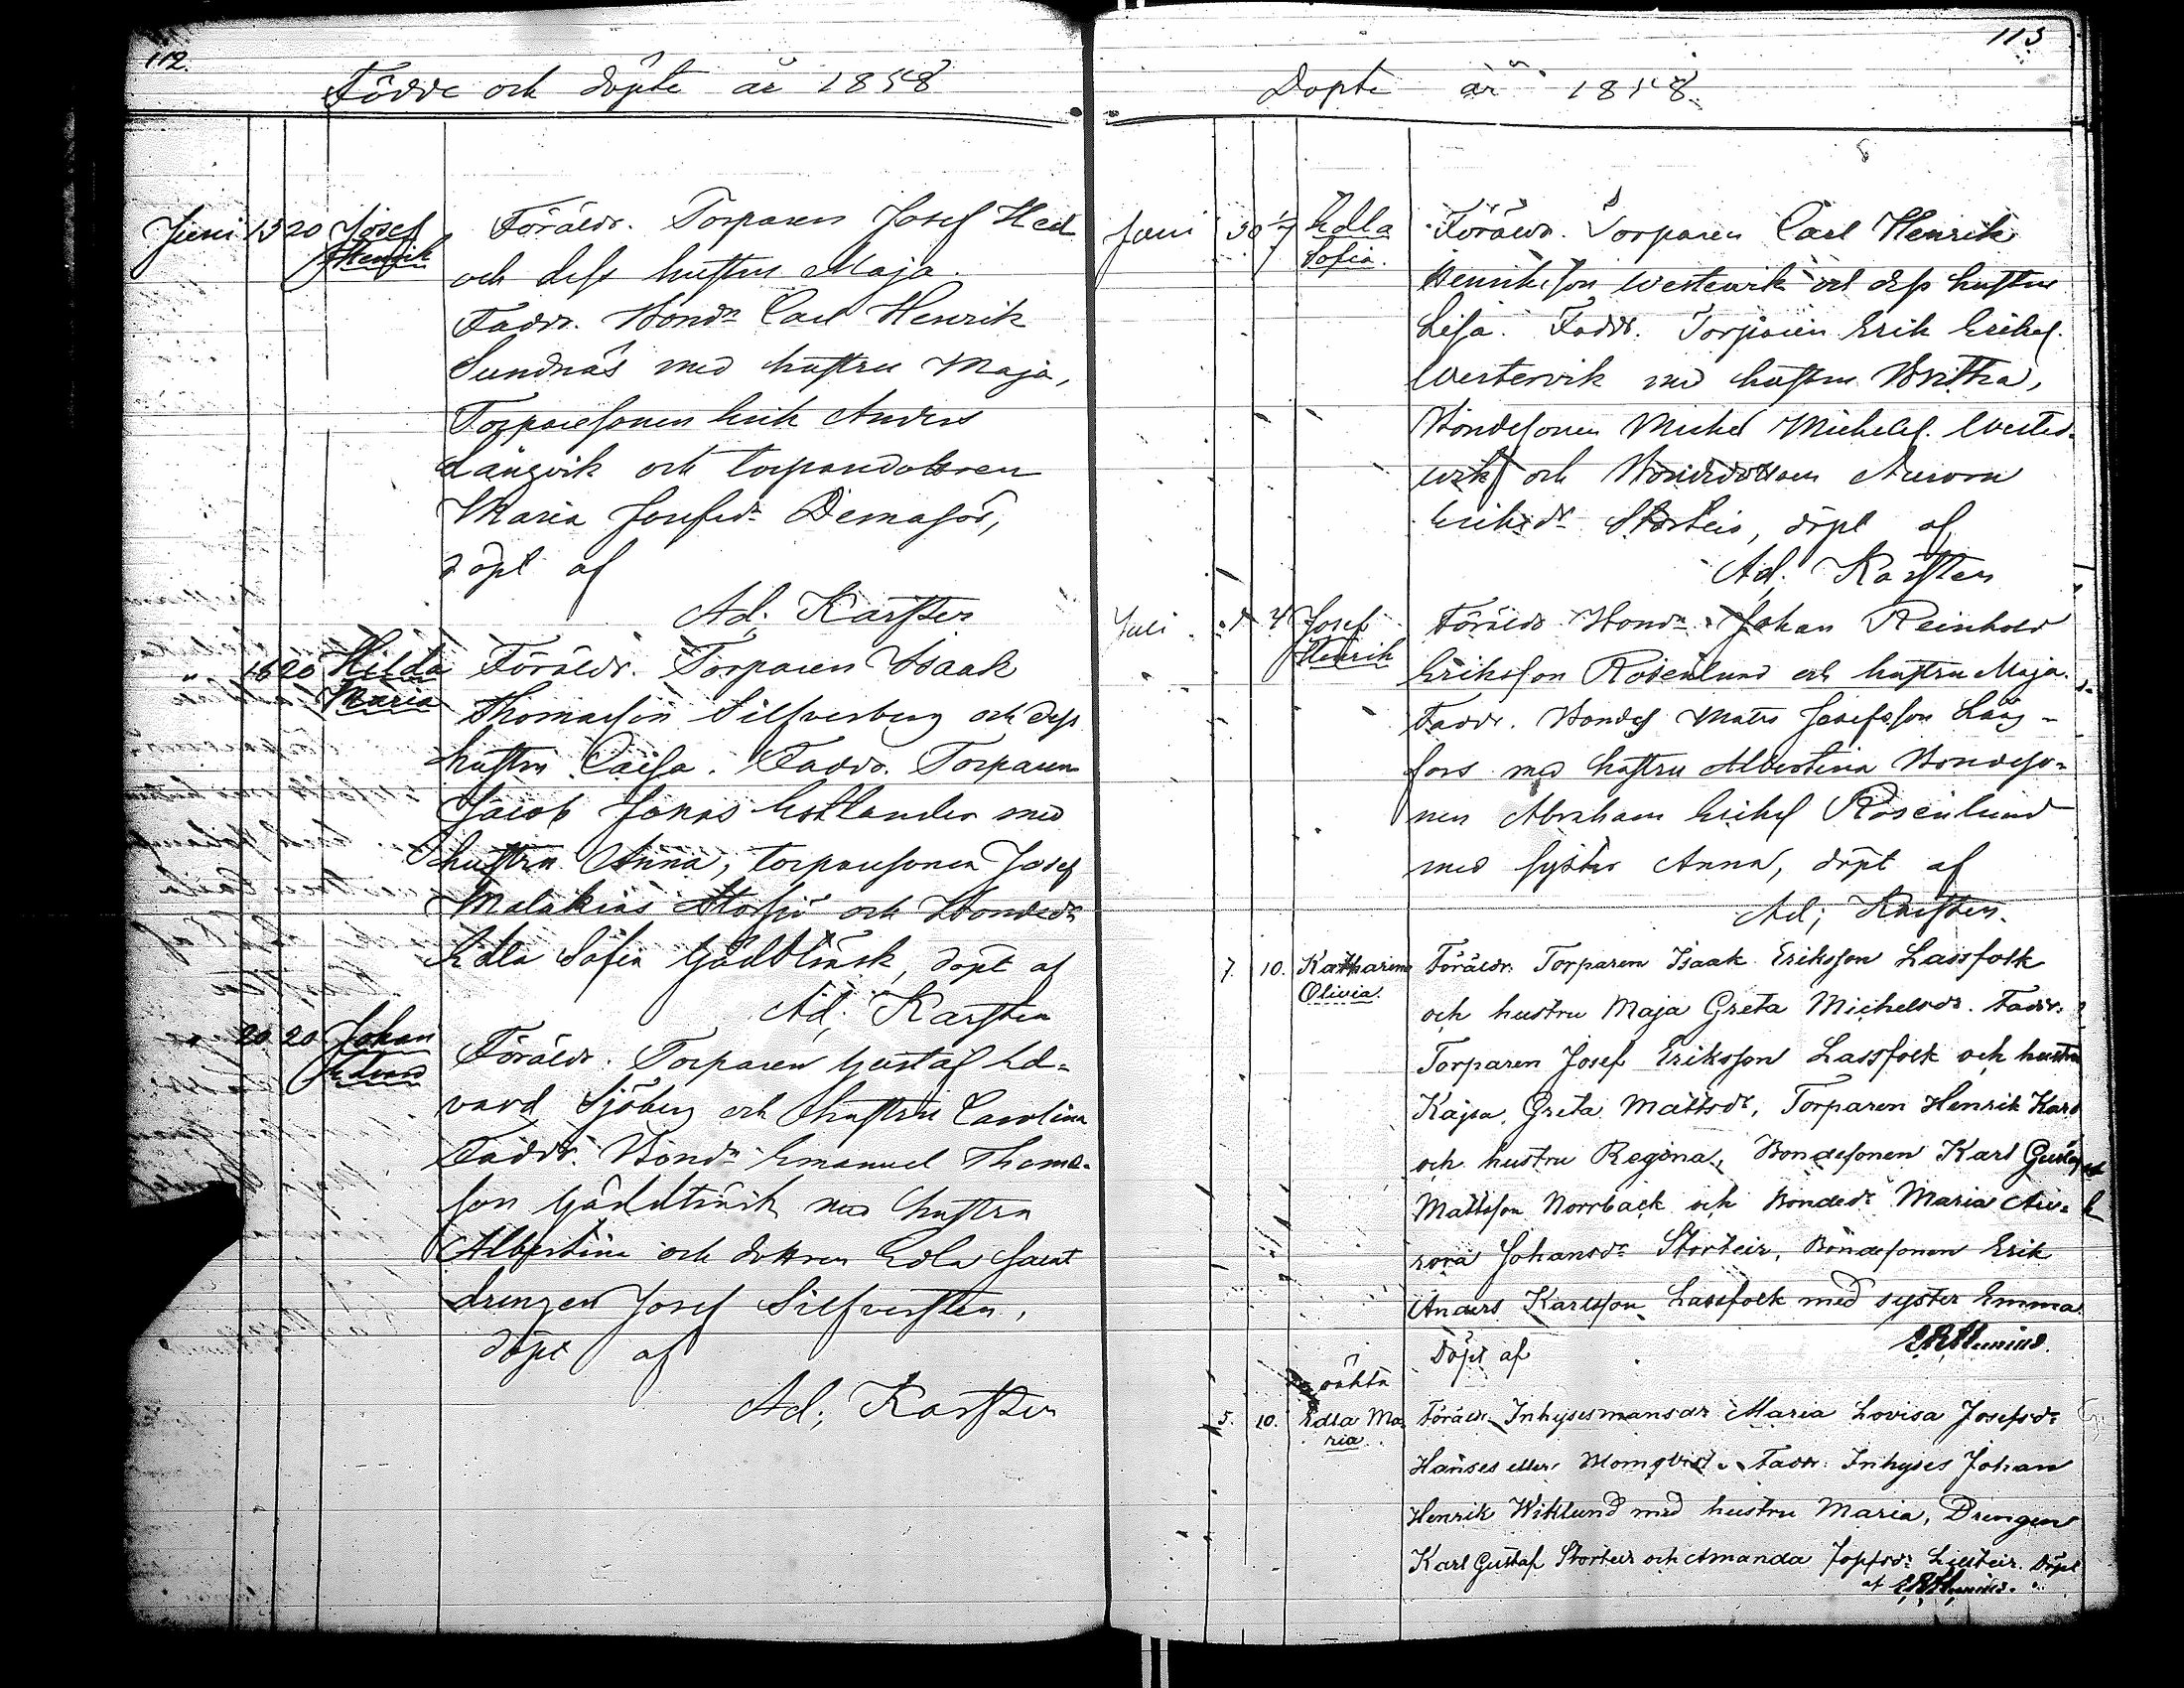 112.
Födde och döpte år 1858
Juni 15 20 Josef Henrik
Föräldr. Torparen Josef Hed
och dess hustru Maja.
Faddr. Bondn Carl Henrik
Sundnäs med hustru Maja,
Torparesonen Erik Anders
Långvik och torparedottren
Maria Josefsdr
döpt af
Ad. Karsten
" 16 20 Hilda Maria
Föräldr. Torparen Isaak
Thomasson Silfverberg och dess
hustru Caisa. Faddr. Torparen
Jacob Jonas Estlander med
hustru Anna, torparesonen Josef
Malakias Storsjö och Bondedr
Edla Sofia Gäddträsk, döpt af
Ad. Karsten
" 20 20 Johan Edvard
Föräldr. Torparen Gustaf Ed-
vard Sjöberg och hustru Carolina
Faddr. Bondn Emanuel Thoma-
son Gäddträsk med hustru
Albertina och dottren Edla samt
drengen Josef Silfversten,
döpt af
Ad; Karsten
113
Döpte år 1858.
Juni 30 4/7 Edla Sofia.
Föräldr. Torparen Carl Henrik
Henriksson Westervik och dess hustru
Lisa. Faddr. Torparen Erik Eriks.
Westervik med hustru Britha,
Bondesonen Michel Michels. Wester-
vik och Bondedottren Aurora
Eriksdr Storteir, döpt af
Ad. Karsten
Juli 1 4 Josef Henrik
Föräldr. Bondn Johan Reinhold
Eriksson Rosenlund och hustru Maja.
Faddr. Bondes Matts Josefsson Lång-
fors med hustru Albertina Bondeso-
nen Abraham Eriks Rosenlund
med syster Anna, döpt af
Ad; Karsten.
7. 10. Katharina Olivia.
Föräldr. Torparen Isaak Eriksson Lassfolk
och hustru Maja Greta Michelsdr. Faddr.
Torparen Josef Eriksson Lassfolk och hustru
Kajsa Greta Mattsdr, Torparen Henrik Karl
och hustru Regina, Bondesonen Karl Gustaf
Mattsson Norrback och Bondedr Maria Au-
rora Johansdr Storteir, Bondesonen Erik
Anders Karlsson Lassfolk med syster Emma.
Döpt af
oäkta
5. 10. Edla Maria.
Föräldr. Inhysesmansdr Maria Lovisa Josefsdr
Hanses eller Blomqvist. Faddr. Inhyses Johan
Henrik Wiklund med hustru Maria, Drengen
Karl Gustaf Storteir och Amanda Josefsdr Lillteir. Döpt
af